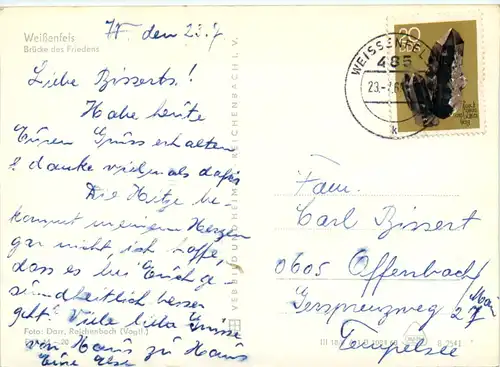 Weißenfels
Brücke des Friedens
den 23.7
Liebe Bisserts!
Habe heute
Euren Gruss erhalten
& danke vielmals dafür
Die Hitze be
kommt meinem Herzen
gar nicht ich hoffe,
dass es bei Euch ge
sundheitlich besser
geht. Viele liebe Grüsse
von Haus zu Haus
Eure Else
Foto: Darr, Reichenbach (Vogtl.)
VEB BILD UND HEIMAT REICHENBACH I. V.
WEISSENFELS
485
23.-7.69
k
Fam.
Carl Bissert
0605 Offenbach/
Main
Gersprenzweg 27
Tempelsee